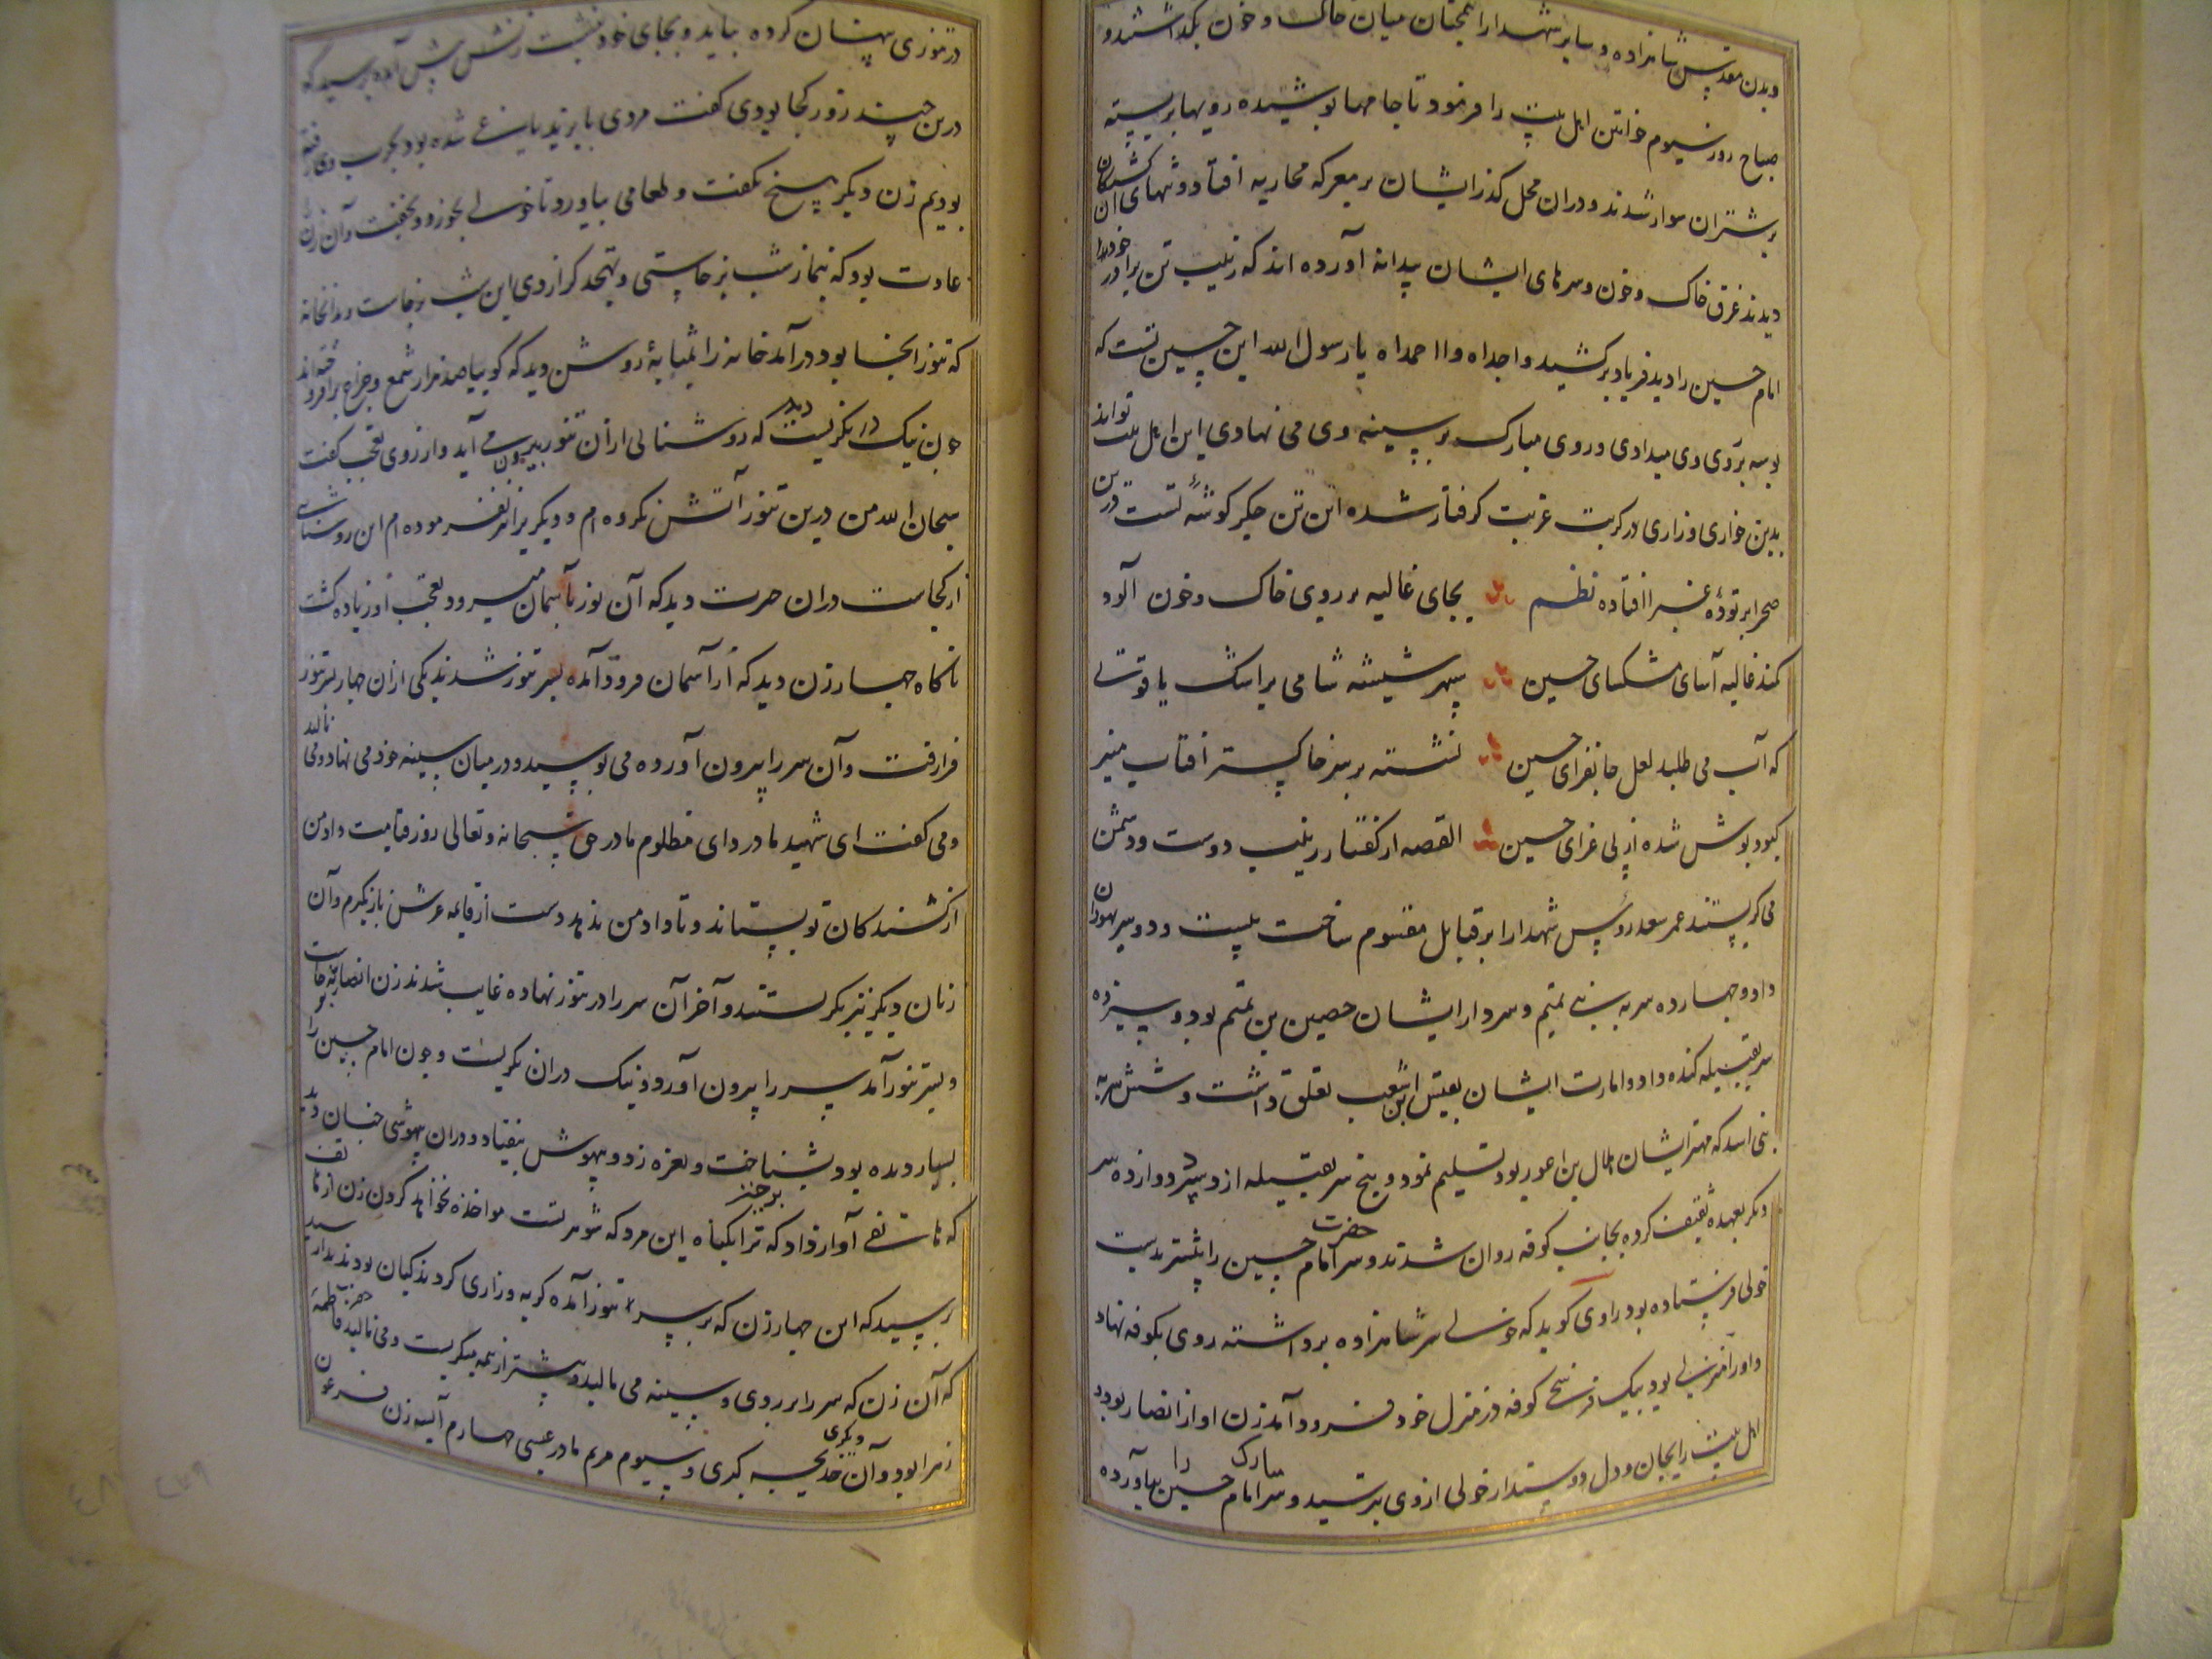 وبدن مقدس شاهزاده و سایر شهدا را همچنان میان خاک و خون بگذاشتند و
صباح روز سیوم خواتین اهل بیت را فرمود تا جامها پوشیده رویها بربسته
بر شتران سوار شدند و دران محل گذر ایشان بر معرکه محاربه افتاد و تنهای آن کشتگان
دیدند غرق خاک و خون و سرهای ایشان پیدانه آورده اند که زینب تن برادر خود را
امام حسین را دید فریاد برکشید واجداه وااحمداه یا رسول الله این حسین تست که
بوسه بروی وی میدادی و روی مبارک بر سینه وی می نهادی این اهل بیت تواند
بدین خواری و زاری در کربت غربت گرفتار شده این تن جگر گوشهٔ تست درین
صحرا بر تودهٔ غبرا افتاده نظم بجای غالیه بر روی خاک و خون آلود
کند غالیه آسای مشکسای حسین سپهر شیشه شامی پر اشک یاقوتی
که آب می طلبد لعل جانفزای حسین نشسته بر سر خاکستر آفتاب منیر
کبود پوش شده از پی عزای حسین القصه از گفتار زینب دوست و دشمن
می گریستند عمر سعد روس شهدا را بر قبایل مقسوم ساخت بیست و دو سر بهوازن
داد و چهارده سر به بنی تمیم و سردار ایشان حصین بن تمیم بود و سیزده
سر بقبیله کنده داد و امارت ایشان بقیس ابن اشعب تعلق داشت و شش سر به
بنی اسد که مهتر ایشان هلال بن اعور بود تسلیم نمود و پنج سر بقبیله ازد سپرد و دوازده سر
دیگر بعهده ثقیف کرده بجانب کوفه روان شدند و سر حضرت امام حسین را پیشتر بدست
خولی فرستاده بود راوی گوید که خولی سر شاهزاده برداشته روی بکوفه نهاد
و او را منزلی بود بیک فرسخ کوفه در منزل خود فرود آمد زن او از انصار بود و
اهل بیت را بجان و دل دوستدار خولی از وی بترسید و سر مبارک امام حسین را بیاورده
در تنوری پنهان کرده بیاید و بجای خود نشست زنش پیش آمده پرسید که
درین چند روز کجا بودی گفت مردی با یزید یاغی شده بود بحرب وی رفته
بودیم زن دیگر هیچ نگفت و طعامی بیاورد تا خولی بخورد و بخفت و آن زن را
عادت بود که بنماز شب برخاستی و تهجد کزاردی این شب برخاست و بدانخانه
که تنور انجا بود درآمد خانه را بمثابهٔ روشن دید که گوییا صد هزار شمع و چراغ برافروخته اند
چون نیک در نگریست دید که روشنائی ازان تنور بیرون می آید و از روی تعجب گفت
سبحان الله من درین تنور آتش نکرده ام و دیگری را نیز نفرموده ام این روشنائی
از کجاست دران حیرت دید که آن نور بآسمان میرود تعجب او زیاده گشت
ناگاه چهار زن دید که از آسمان فرود آمده بسر تنور شدند یکی ازان چهار بسر تنور
فرا رفت و آن سر را بیرون آورده می بوسید و در میان سینه خود می نهاد و می نالید
و می گفت ای شهید مادر و ای مظلوم مادر حق سبحانه و تعالی روز قیامت داد من
از کشندگان تو بستاند و تا داد من ندهد دست از قایمه عرش باز نگیرم و آن
زنان دیگر نیز بگریستند و آخر آن سر را در تنور نهاده غایب شدند زن انصاریه برخاست
و بسر تنور آمد سر را بیرون آورد و نیک دران نگریست و چون امام حسین را
بسیار دیده بود بشناخت و نعره زد و بیهوش بیفتاد و دران بیهوشی چنان دید
که هاتفی آواز داد که برخیز ترا بگناه این مرد که شوهر تست مواخذه نخواهد کردن زن از هاتف
پرسید که این چهار زن که بر سر تنور آمده گریه و زاری کردند کیان بودند ندا رسید
که آن زن که سر را بر روی و سینه می مالید و پیشتر از همه میگریست و می نالید حضرت فاطمهٔ
زهرا بود و آن دیگری خدیجه کبری و سیوم مریم مادر عیسی چهارم آسیه زن فرعون